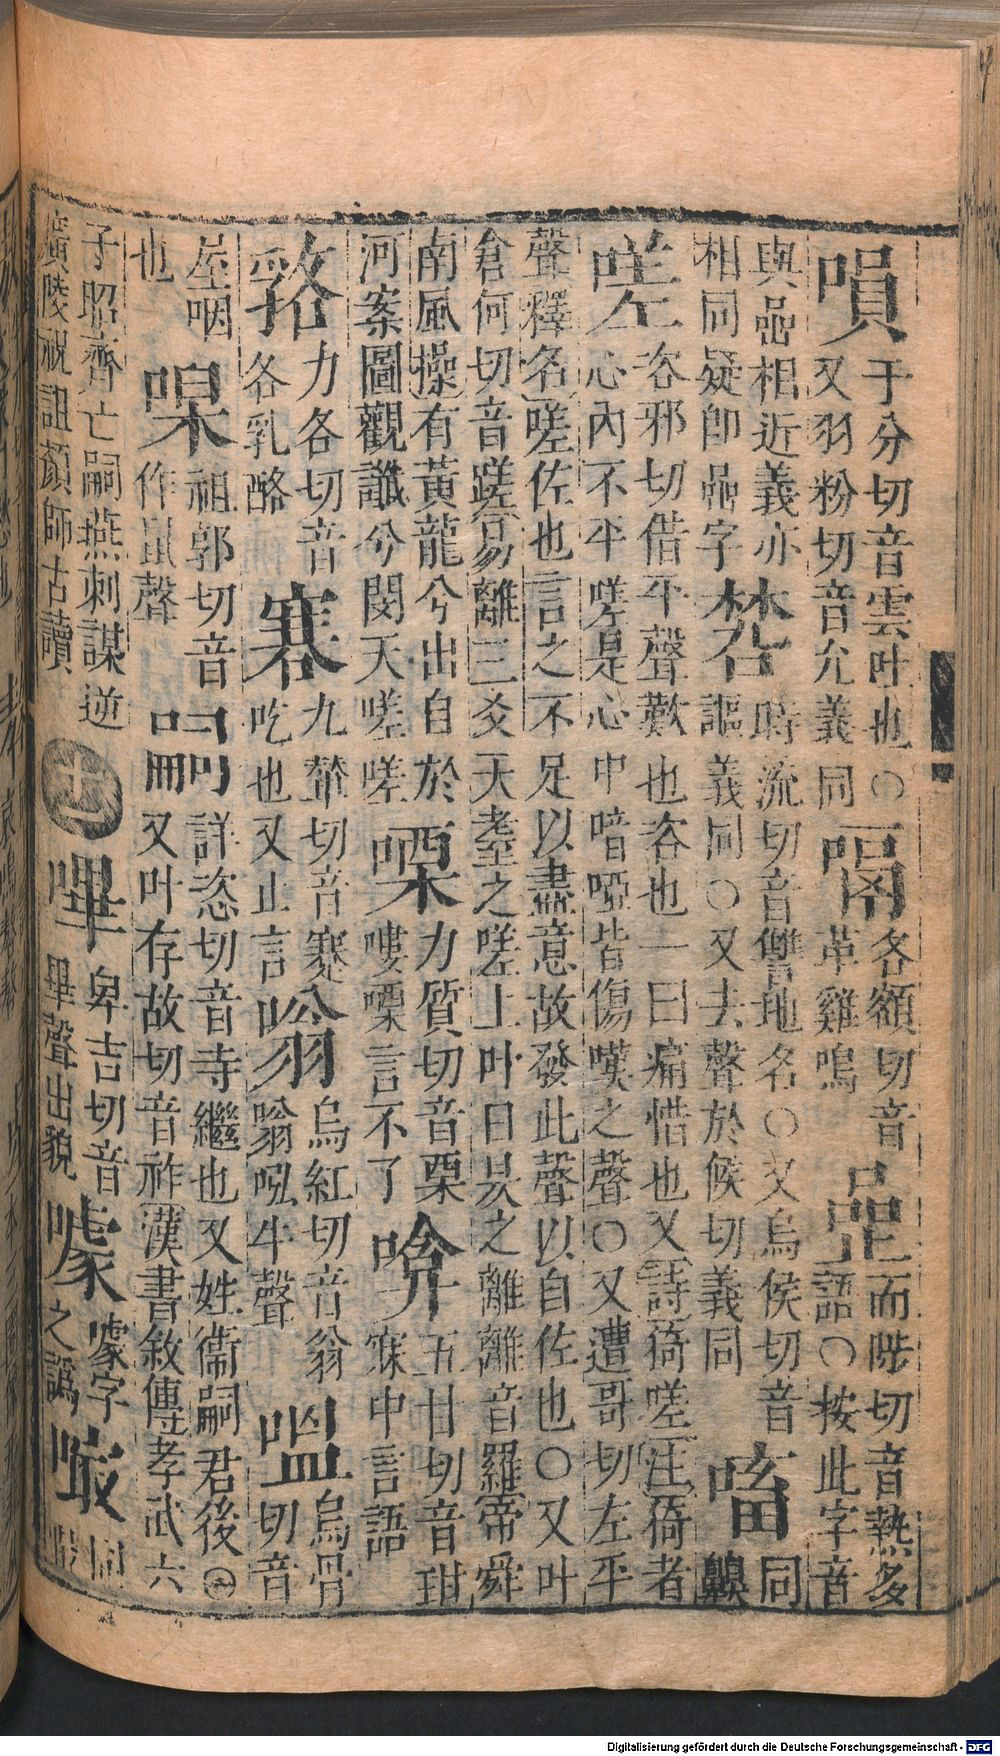 于分切音雲吐也○又羽粉切音允義同 嗝 各額切音革雞鳴 而陟切音熱多語○按此字音
與喦相近義亦相同疑即喦字 時流切音讐地名○又烏侯切音謳義同○又去聲於候切義同 㗜 同齅
嗟 咨邪切借平聲歎也咨也一曰痛惜也又詩猗嗟注猗者心內不平嗟是心中喑啞皆傷嘆之聲○又遭哥切左平
聲釋名嗟佐也言之不足以盡意故發此聲以自佐也○又叶倉何切音蹉易離三爻大耋之嗟上叶日昃之離離音羅帝舜
南風操有黃龍兮出自於河案圖觀讖兮閔天嗟嗟 㗚 力質切音栗嘍㗚言不了 五甘切音玵寐中言語
力各切音各乳酪 九輦切音蹇吃也又止言 嗡 烏紅切音翁嗡吆牛聲 嗢 烏骨切音
咽也 祖郭切音作鼠聲 嗣 詳恣切音寺繼也又姓衞嗣君後㊀又叶存故切音祚漢書敘傳孝武六
子昭齊亡嗣燕刺謀逆廣陵祝詛顏師古讀 十一 嗶 卑吉切音畢聲出貌 字之譌 同
Digitalisierung gefördert durch die Deutsche Forschungsgemeinschaft - DFG